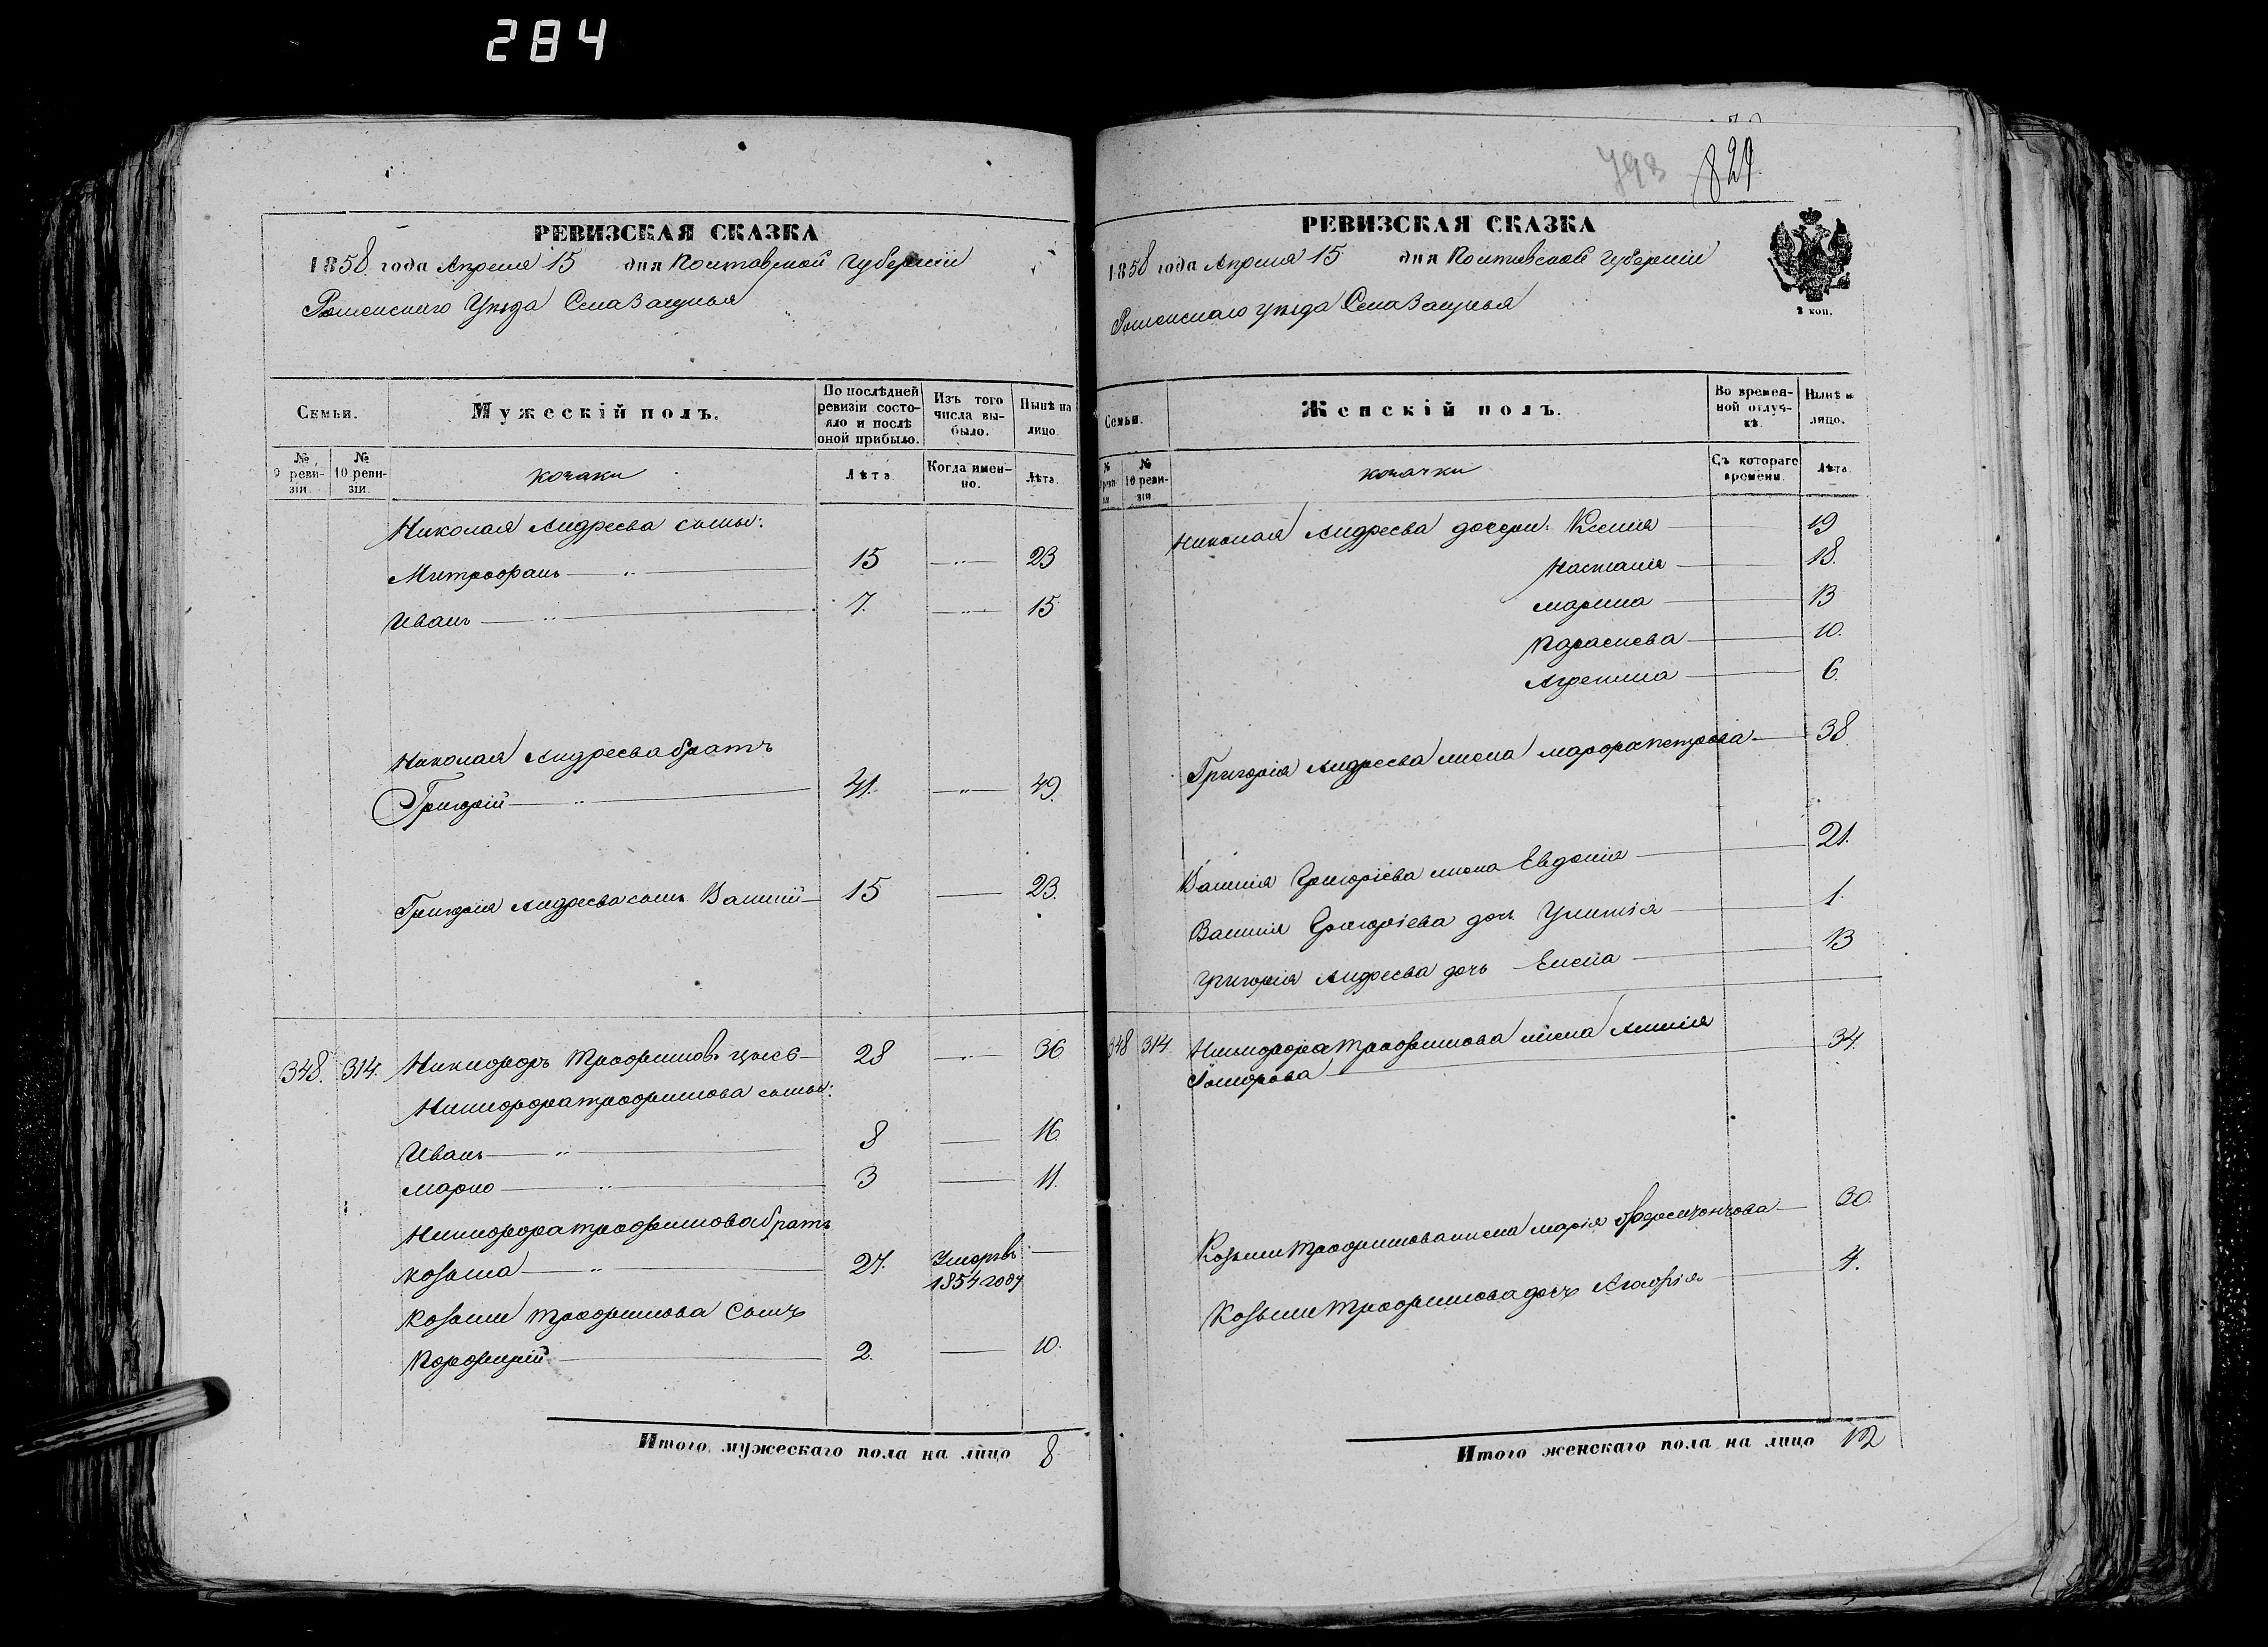 284
РЕВИЗСКАЯ СКАЗКА
1858 года Апреля 15 дня Полтавской Губерніи
Роменскаго Уезда Села Засулья
Семьи.
Мужескій полъ.
По послѣдней ревизіи состояло и послѣ оной прибыло.
Изъ того числа выбыло.
Нынѣ на лицо
№ 9 ревизіи.
№ 10 ревизіи.
козаки
Лѣта
Когда именно.
Лѣта
Николая Андреева сыны:
Митрофанъ — „ — 15 — „ — 23
Иванъ — „ — 7. — „ — 15
Николая Андреева братъ
Григорій — „ — 41. — „ — 49.
Григорія Андреева сынъ Василій — 15 — 23.
348. 314. Никифоръ Трофимовъ 28 — „ — 36
Никифора Трофимова сыны:
Иванъ — „ — 8 — 16.
Марко — „ — 3 — 11.
Никифора Трофимова братъ
Козьма — „ — 27. Умеръ въ 1854 году —
Козьмы Трофимова Сынъ
Порфирій — 2. — 10.
Итого мужескаго пола на лицо 8
793 829
РЕВИЗСКАЯ СКАЗКА
1858 года Апреля 15 дня Полтавской Губерніи
Роменскаго уезда Села Засулья
2 коп.
Семьи.
Женскій полъ.
Во временной отлучкѣ.
Нынѣ на лицо.
№ 10 ревизіи
козачки
Съ котораго времени.
Лѣта
Николая Андреева дочери: Ксенія — 19
Настасія — 18.
Марина — 13
Параскева — 10.
Агрепина — 6.
Григорія Андреева жена Марфа Петрова — 38
Василія Григоріева жена Евдокія — 21.
Василія Григоріева дочь — 1.
Григорія Андреева дочь Елена — 13
348 314 Никифора Трофимова жена — 34.
Козьмы Трофимова жена Марія — 30.
Козьмы Трофимова дочь Агафія — 4.
Итого женскаго пола на лицо 12